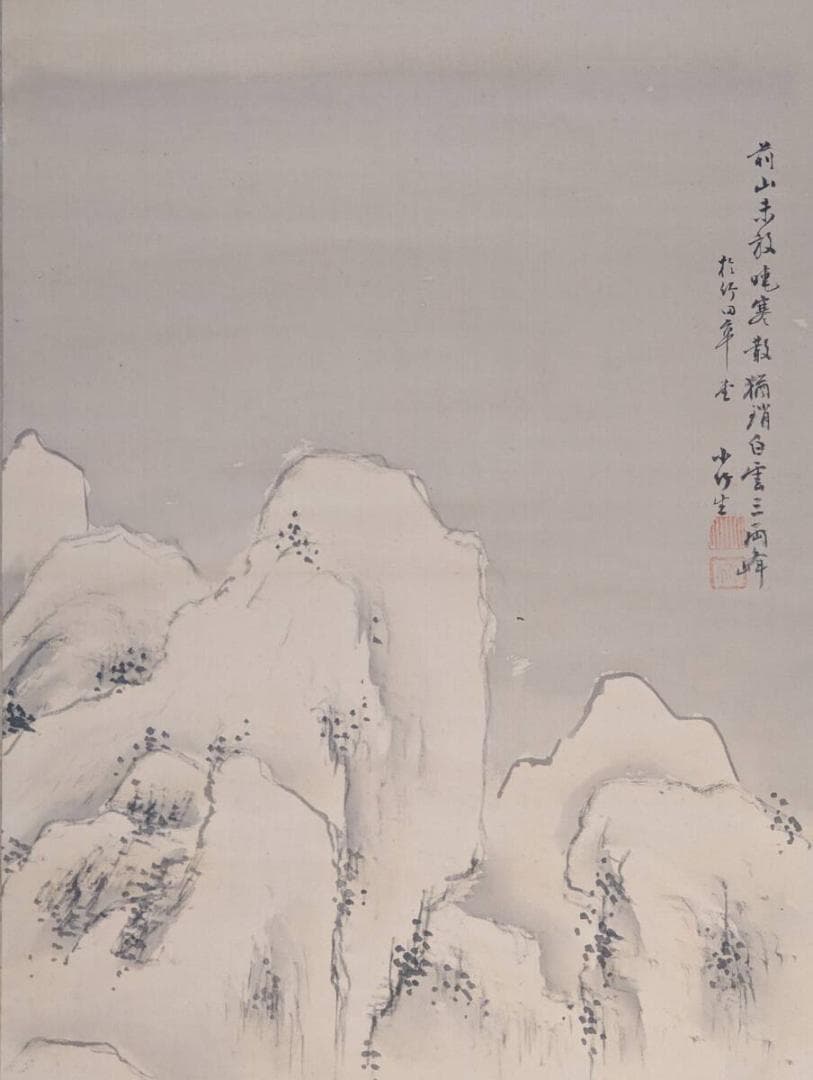 前山未放曉寒散猶鎖白雲三兩峰
於竹田草堂 小竹生